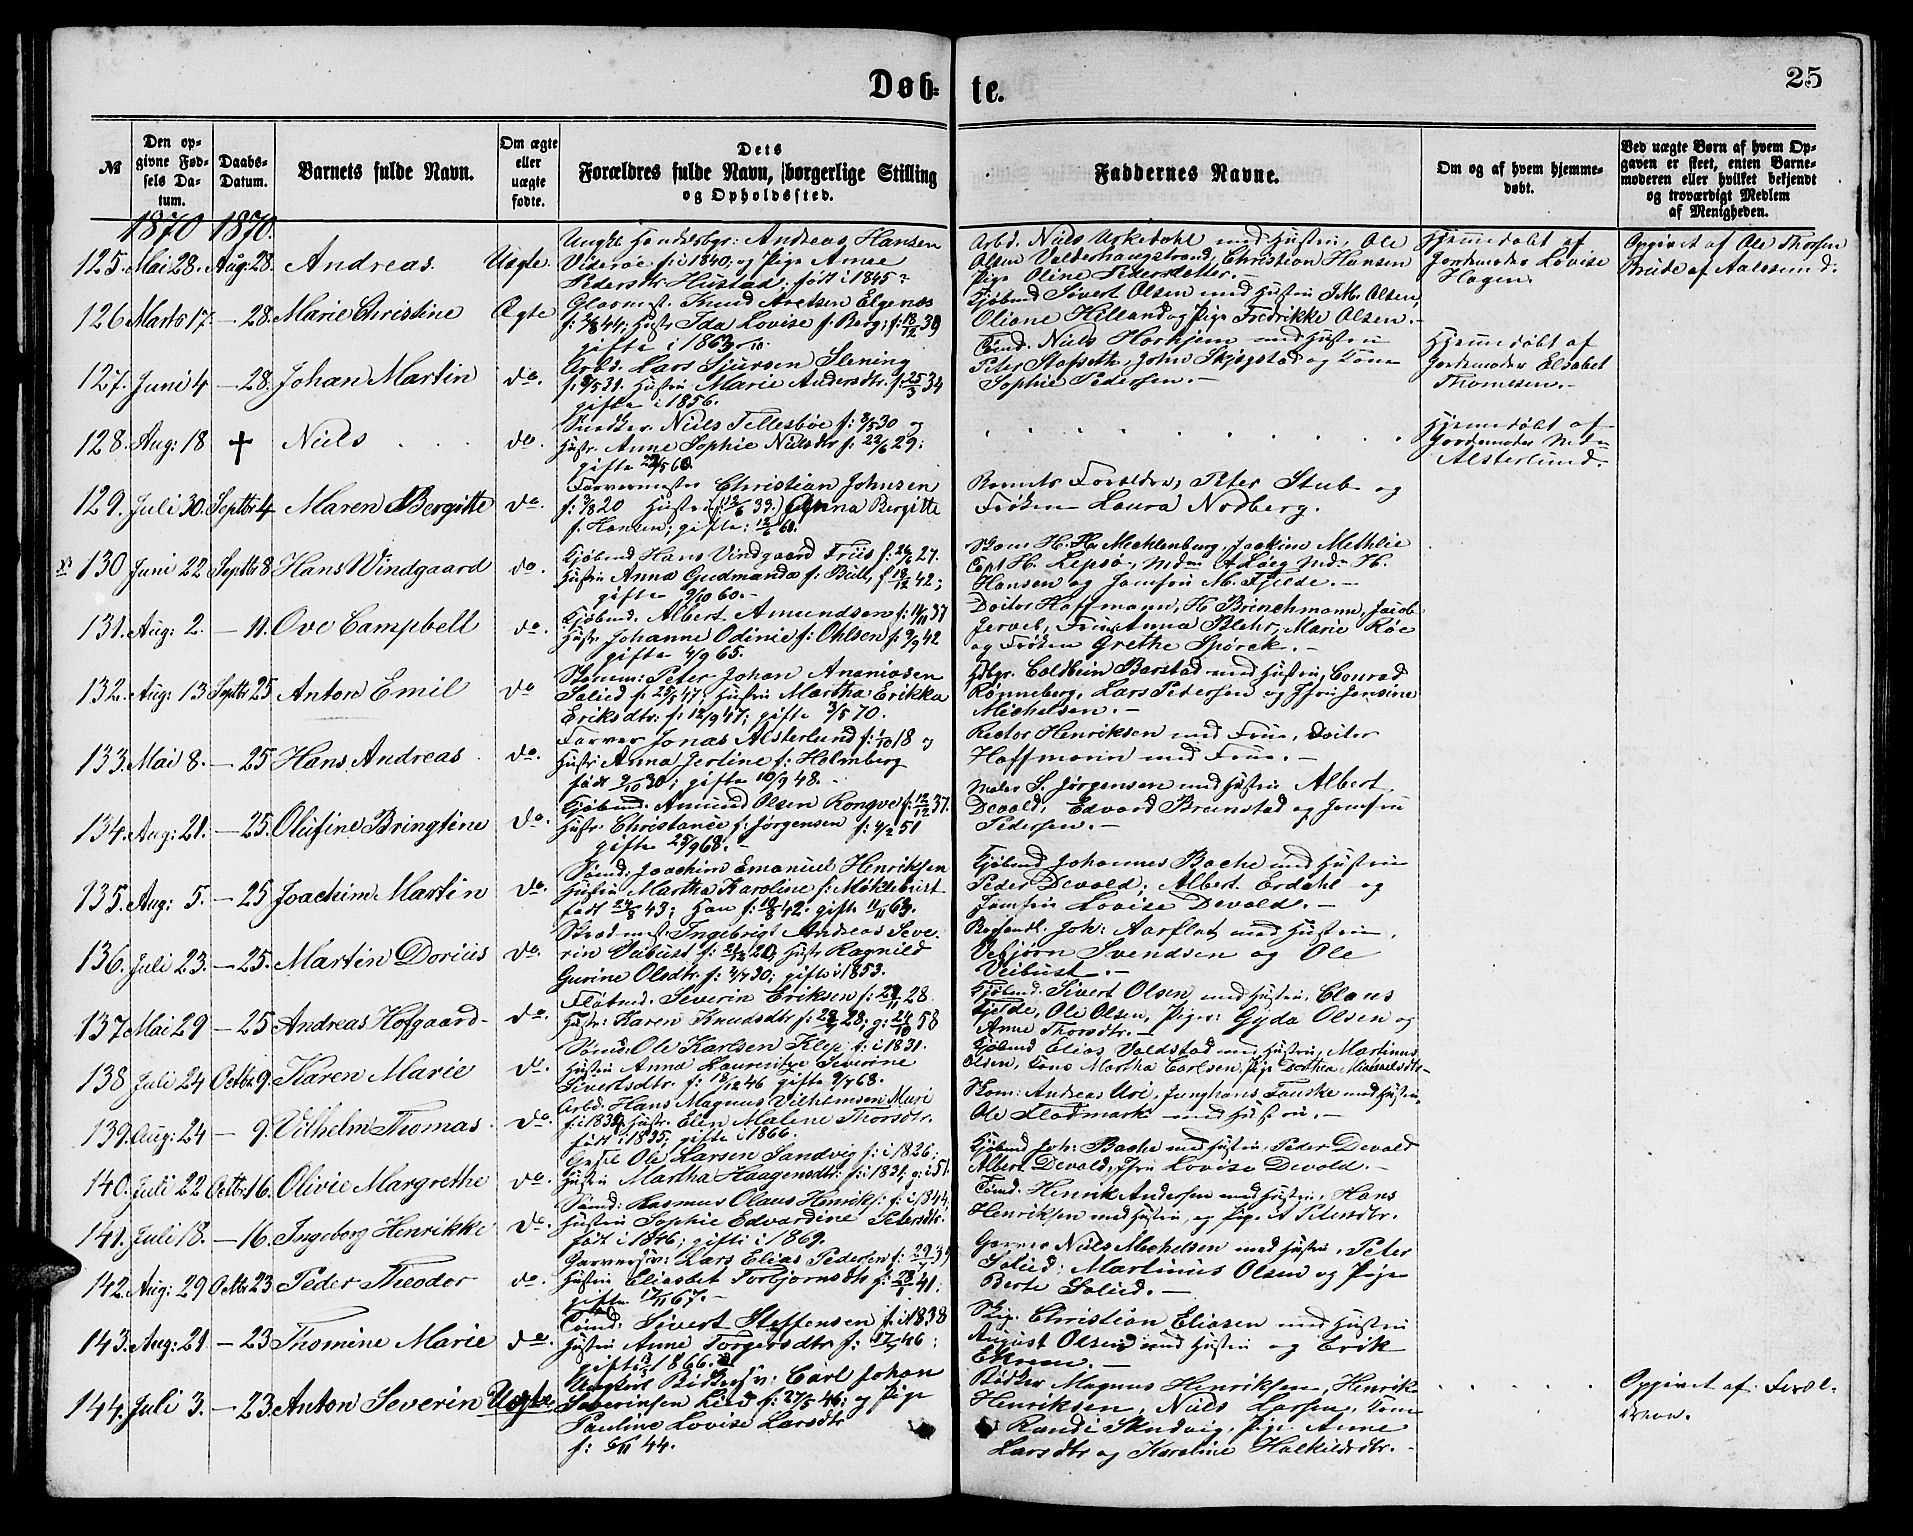 Døb-
te.
25
№
Den op-
givne Fød-
sels Da-
tum.
Daabs-
Datum.
Barnets fulde Navn.
Om ægte
eller
uægte
fødte.
Dets
Forældres fulde Navn, borgerlige Stilling
og Opholdssted.
Faddernes Navne.
Om og af hvem hjemme-
døbt.
Ved uægte Børn af hvem Op-
gaven er skeet, enten Barne-
moderen eller hvilket bekjendt
og troværdigt Medlem
af Menigheden.
1870 1870.
125. Mai 28. Aug: 28. Andreas. Uægte.
Ungk. Andreas Hansen
Viderøe f: i 1840; og Pige Anne
Pedersdtr Hustad; født i 1845
Arbd. Niels Urkedahl med Hustru, Ole
Olsen Valderhaugstrand, Christian Hansen
Pige Oline Pedersdatter.
Hjemmedøbt af
Jordemoder Lovise
Hagen.
Opgivet af Ole Thorsen
Brude af Aalesund.
126 Marts 17. — 28. Marie Christine Ægte
Glasmest. Knud Aretsen Elgenæs
Hustr Ida Lovise f: Berg; f: 18/12 39
gifte i 1863
Kjøbmd Sivert Olsen med Hustru J. M. Olsen,
Oliane Hilland og Pige Fredrikke Olsen.
127. Juni 4 — 28. Johan Martin do.
Arbd. Lars Sjursen Slening
Hustru Marie Andersdtr. f: 25/3 34
gifte i 1856.
Tømd. Niels Horkjem med Hustru
Peter Stafseth, John Skjøgstad og Kone
Sophie Pedersen.
Hjemmedøbt af
Jordemoder Elsabet
Thomesen.
128. Aug: 18 † Niels do.
Snedker. Niels Tellesbøe f: 8/5 30 og
Hustr. Anne Sophie Nielsdtr f: 22/6 29;
gifte 22/5 60.
Hjemmedøbt af
Jordemoder Mdm
Alsterlund.
129. Juli 30. Septbr 4 Maren Bergitte do
Farvermester Christian Johnsen
Hustru Anna Bergitte
f. Hansen; gifte:
Barnets Forældre, Peter Stub og
Frøken Laura Nodberg.
130 Juni 22 Septbr 8 Hans Windgaard do.
Kjøbmd Hans Vindgaard Friis f: 26/2 27.
Hustru Anna Gudmanda f: Bull, f 18/12 42;
gifte 9/10 60.
Skom. H. H. Mechlenburg, Joakim Methlie
Capt H. Lepsø, Mdm A Løeg Mdm H.
Hansen og Jomfru M. Fjelde.
131. Aug: 2. — 11. Ove Campbell do.
Kjøbmd. Albert Amundsen f: 11/11 37
Hustr. Johanne Odinie f: Ohlsen f: 9/9 42
gifte 4/9 65.
Doiter Hoffmann, H. Brinchmann, Jacob
Jervel, Frue Anna Blehr, Marie Røe
og Frøken Grethe Spørck.
132. Aug: 13 Septbr 25 Anton Emil do
Peter Johan Ananiasen
Solied f: 25/5 47, Hustru Martha Erikka
Eriksdtr: f: 12/9 47; gifte 3/5 70.
Coldbein Barstad med Hustru, Conrad
Rønneberg, Lars Pedersen og Jfru Jensine
Michelsen.
133. Mai 8. — 25 Hans Andreas do.
Farver Jonas Alsterlund f: 1/10 18 og
Hustr. Anna Jertine f: Holmberg
født 9/10 30; gifte 10/9 48.
Rector Henriksen med Frue, Doiter
Hoffmann med Frue.
134. Aug: 21. — 25. Olufine Bringtine do.
Kjøbmd. Amund Olsen Rongve f: 12/12 37.
Hustr. Christance f: Jørgensen f: 4/2 51
gifte 25/9 68.
Maler S. Jørgensen med Hustru Albert
Devold, Edvard Brunstad og Jomfru
Pedersen.
135. Aug: 5. — 25 Joachim Martin do.
Sømd: Joachim Emanuel Henriksen
Hustru Martha Karoline f: Møklebust
født 24/8 43; Han f: 10/8 42. gifte 11/11 63.
Kjøbmd Johannes Bache med Hustru
Peder Devold; Albert Erdahl og
Jomfru Lovise Devold.
136. Juli 23. — 25. Martin Dorius do.
Skrædmest. Ingebrigt Andreas Seve-
rin Veibust Hustr Ragnild
Gurine Olsdtr. f: 4/7 30; gifte i 1853.
Joh: Aarflot med Hustru,
Vebjørn Svendsen og Ole
Veibust.
137. Mai 29 — 25. Andreas Hofgaard do.
Severin Eriksen f: 29/11 28.
Hustr: Karen Knudsdtr f: 28/2 28; g: 24/10 58
Kjøbmd. Sivert Olsen med Hustru, Claus
Fjelde, Ole Olsen, Piger: Gyda Olsen og
Anne Thorsdtr.
138 Juli 24 Octbr 9. Karen Marie do.
Sømd. Ole Karlsen Klep f: i 1831.
Hustru Anna Lauentze Severine
Sivertsdtr. f: 18/12 46 gifte 9/7 68.
Kjøbmd Elias Valdstad med Hustru, Martinus
Olsen, Kone Martha Carlsen, Pige Dorthea
139. Aug: 24 — 9. Vilhelm Thomas. do.
Arbd. Hans Magnus Vilhelmsen Muri
f: i 1839, Hustr. Elen Malene Thorsdtr.
født i 1835; gifte i 1866.
Skom: Andreas Uri, Junghans Fauske med Hustru,
Ole Flodmark med Hustru.
140. Juli 22 Octbr 16. Olivie Margrethe do.
Ole Larsen Sandvig f: i 1826;
Hustru Martha Haagensdtr: f: i 1831, g: i 51.
Kjøbmd Joh: Bache med Hustru, Peder Devold
Albert Devold, Jfru Lovise Devold.
141. Juli 18. — 16. Ingeborg Henrikke do.
Sømd: Rasmus Olaus Henriks: f: i 1844,
Hustru Sophie Edvardine Petersdtr.
født i 1846; gifte i 1869.
Tømd. Henrik Andersen med Hustru, Hans
Henriksen med Hustru, og Pige A Petersdtr.
142. Aug: 29 Octbr 23 Peder Theodor do.
Garversv: Lars Elias Pedersen f: 29/7 39
Hustru Eliasbet Torbjørnsdtr f: 28/1 41:
gifte 17/11 67.
Garver Niels Michelsen med Hustru, Peter
Solied; Martinus Olsen og Pige
Berte Solied.
143. Aug: 21 — 23 Thomine Marie do.
Tømd: Sivert Steffensen f: i 1838
Hustru Anne Torgersdtr f: 17/7 46;
gifte 1866.
Skip. Christian Eliasen med Hustru
August Olsen med Hustru og Erik
Ekrem.
144. Juli 3. — 23. Anton Severin Uægte.
Ungkarl Bødkersv: Carl Johan
Severinsen Lied f: 27/5 46; og Pige
Pauline Lovise Larsdtr
f: 5/11 44.
Bødker Magnus Henriksen, Henrik
Henriksen, Niels Larsen, Kone
Randi Skudvig, Pige Anne
Larsdtr og Karoline Halkildsdtr.
Opgivet af: Foræl-
drene.